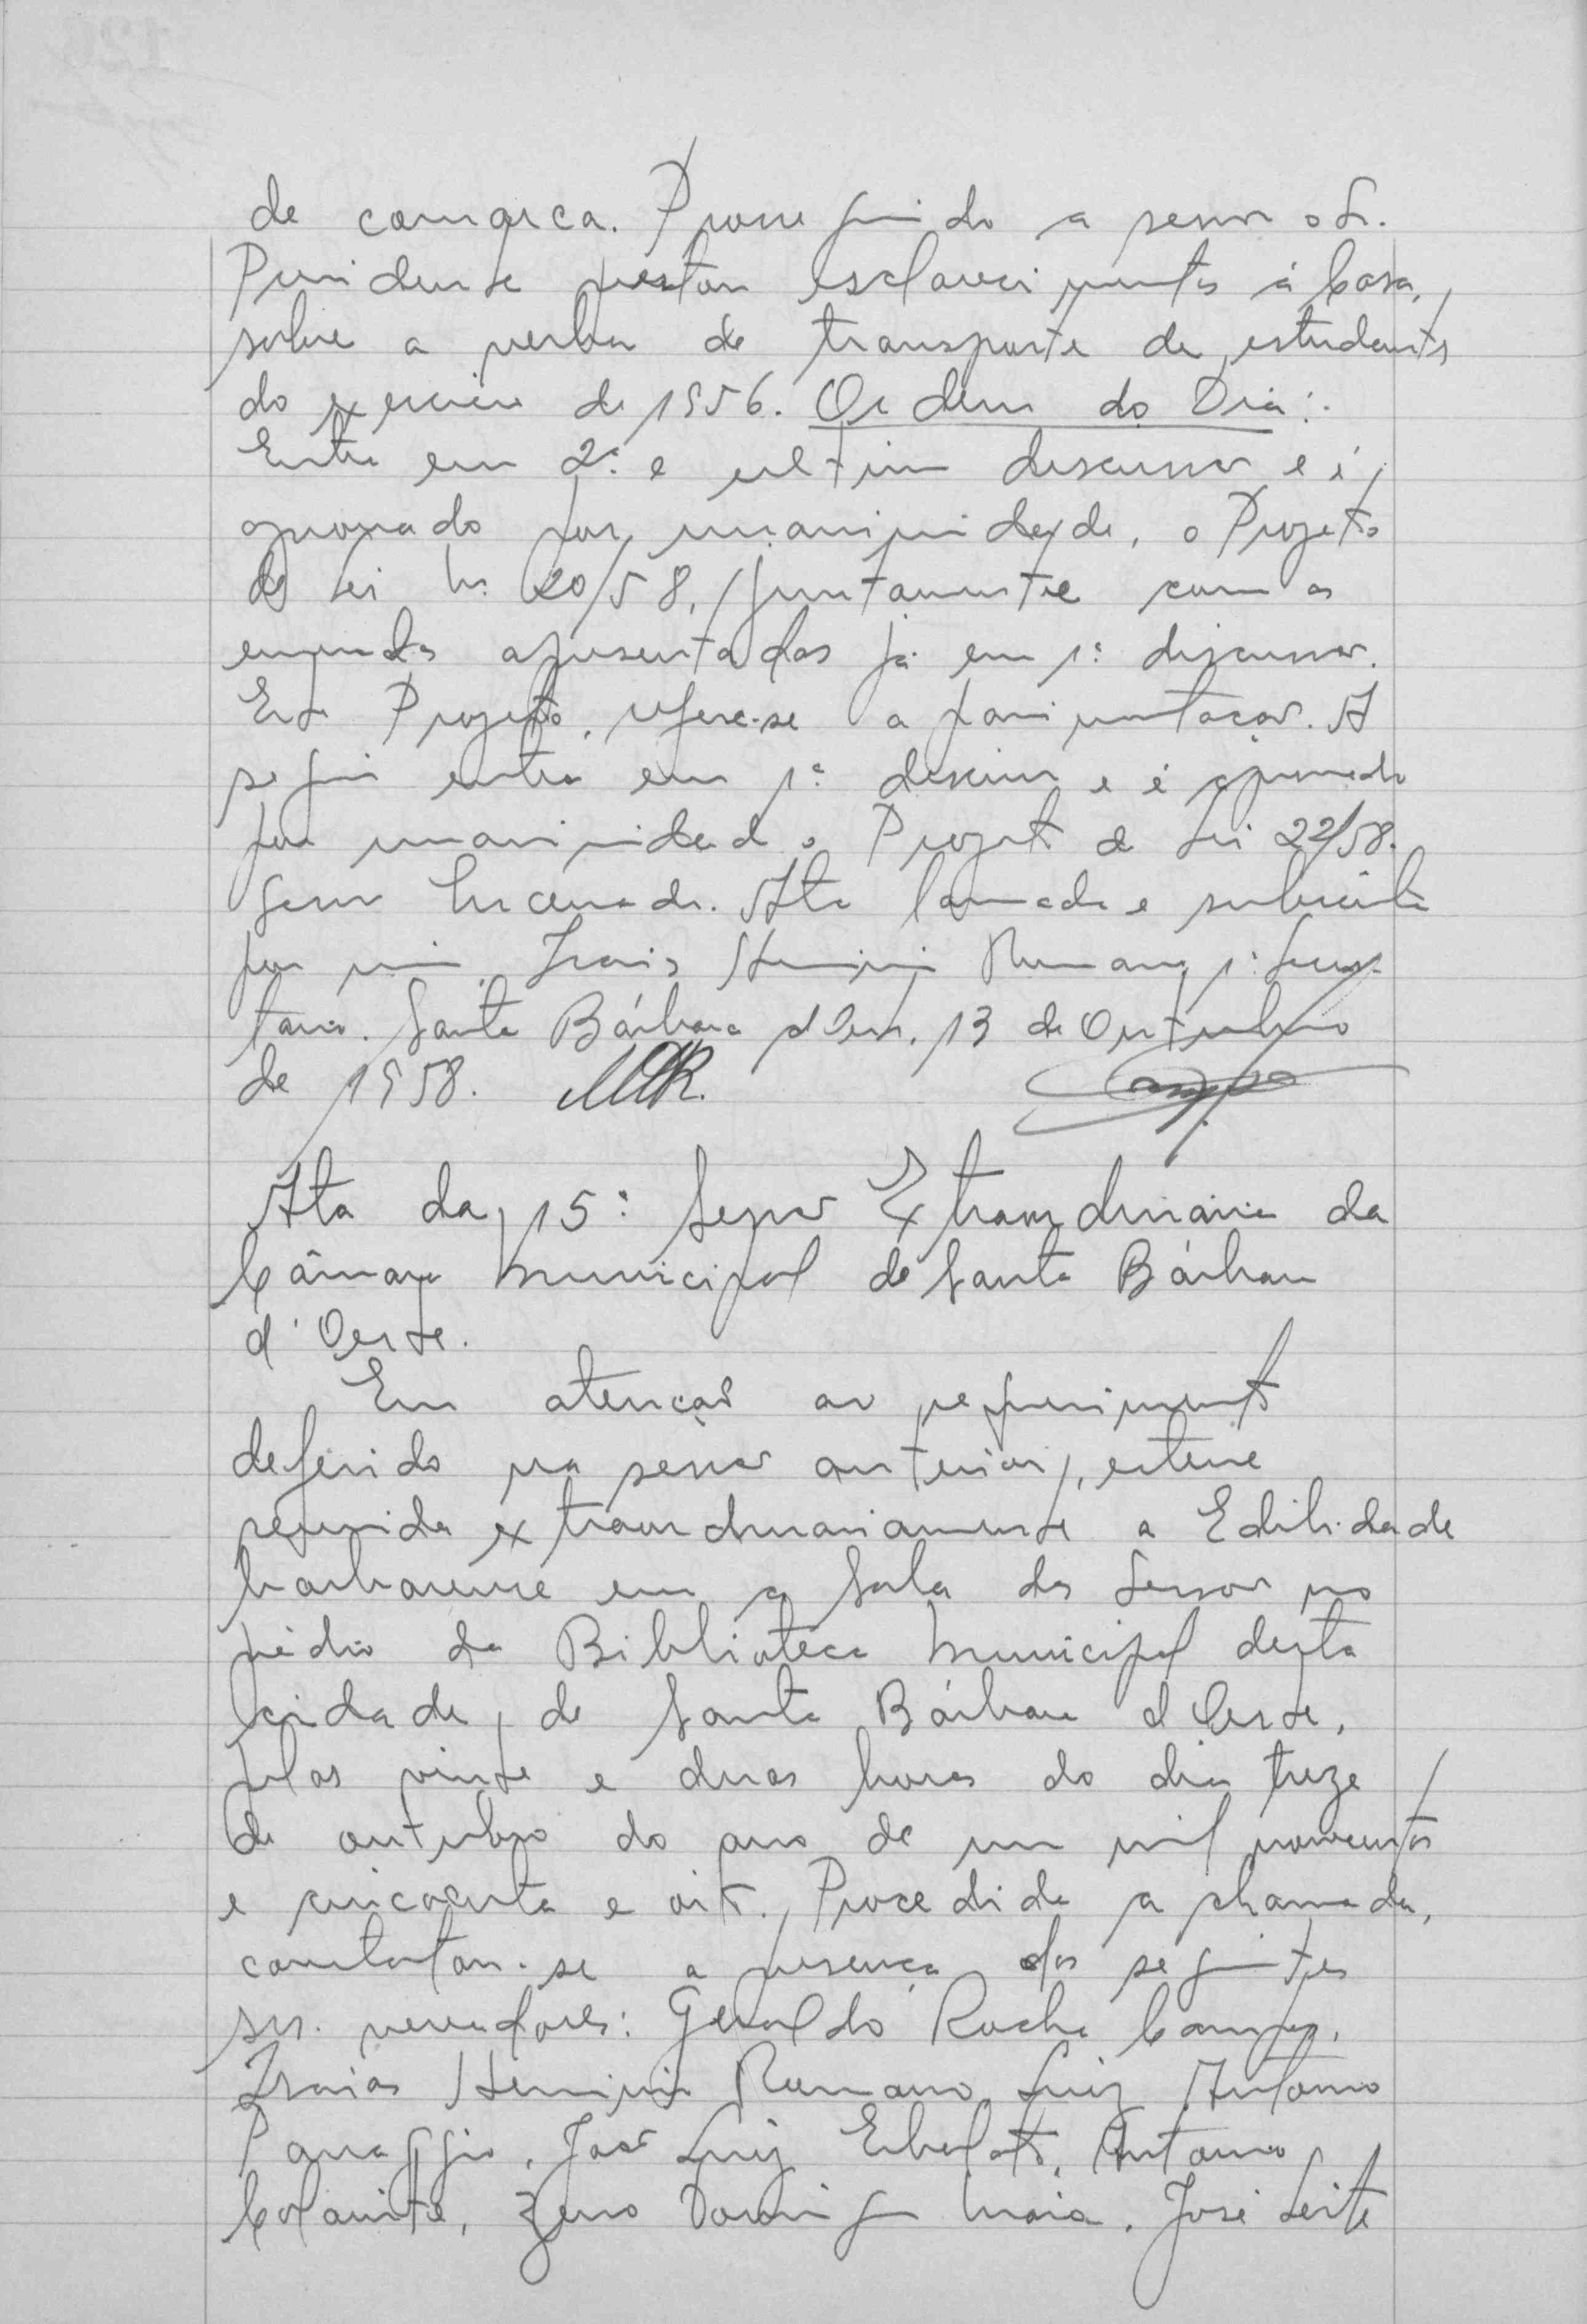 de comarca. Prosseguindo a sessão o Sr.
Presidente prestou esclarecimentos à Casa,
sobre a verba de transporte de estudantes
do exercicio de 1956. Ordem do Dia:
Entra em 2ª e ultima discussão e é
aprovado por unanimidade, o Projeto
de Lei nº 20/58, juntamente com as
emendas apresentadas já em 1ª discussão.
Este Projeto, refere-se a pavimentação. A
seguir entra em 1ª discussão e é aprovado
por unanimidade o Projeto de Lei 22/58.
Sessão Encerrada. Ata lavrada e subscrita
por mim Isaias Herminio Romano, 1º Secre-
tario. Santa Bárbara d'Oeste, 13 de Outubro
de 1958.
Ata da 15ª Sessão Extraordinária da
Câmara Municipal de Santa Bárbara
d'Oeste.
Em atenção ao requerimento
deferido na sessão anterior, esteve
reunida extraordinariamente a Edilidade
barbarense em a Sala das Sessões no
prédio da Biblioteca Municipal desta
cidade, de Santa Bárbara d'Oeste,
pelas vinte e duas horas do dia treze
de outubro do ano de um mil novecentos
e cincoenta e oito. Procedida a chamada,
constatou-se a presença dos seguintes
srs. vereadores: Geraldo Rocha Campos,
Isaias Herminio Romano, Luiz Antonio
Panaggio, João Luiz Antonio
Zeno Domingos Maia, José Leite